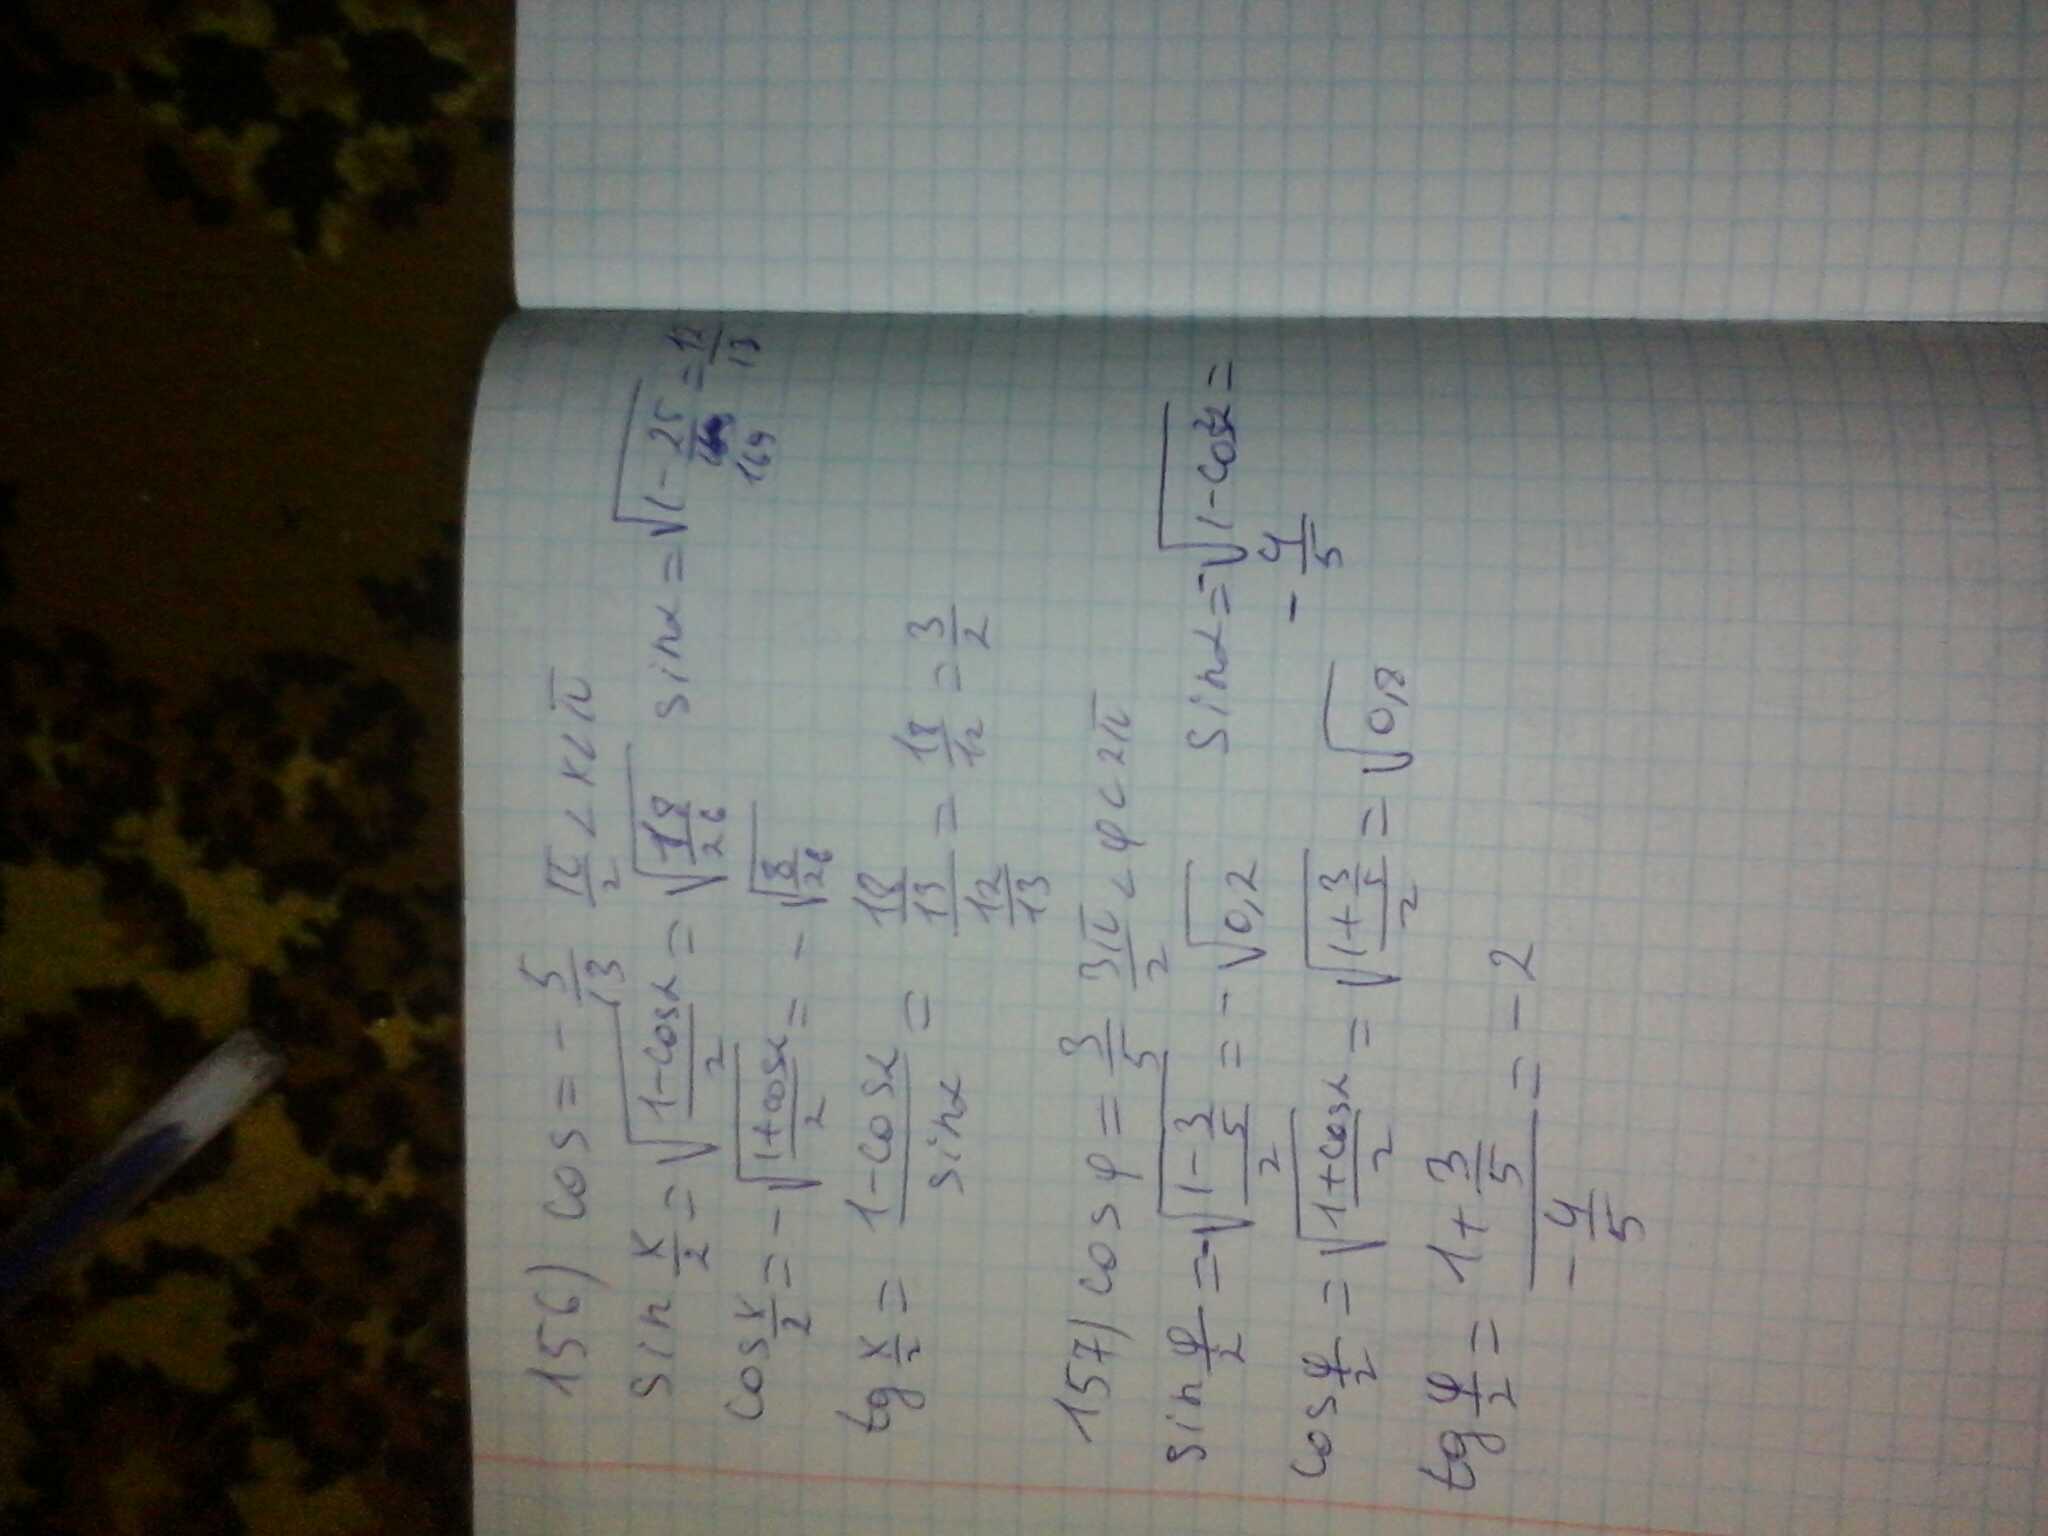 156) cos = - 5/13 π/2 < x < π
sin x/2 = √((1-cosα)/2) = √(18/26) sinα = √(1 - 25/169) = 12/13
cos x/2 = - √((1+cosα)/2) = - √(8/26)
tg x/2 = (1-cosα)/sinα = (18/13)/(12/13) = 18/12 = 3/2
157) cos φ = 3/5 3π/2 < φ < 2π
sin φ/2 = -√((1 - 3/5)/2) = - √0,2 sinα = -√(1-cos²α) =
- 4/5
cos φ/2 = √((1+cosα)/2) = √((1+3/5)/2) = √0,8
tg φ/2 = (1+3/5)/(-4/5) = - 2